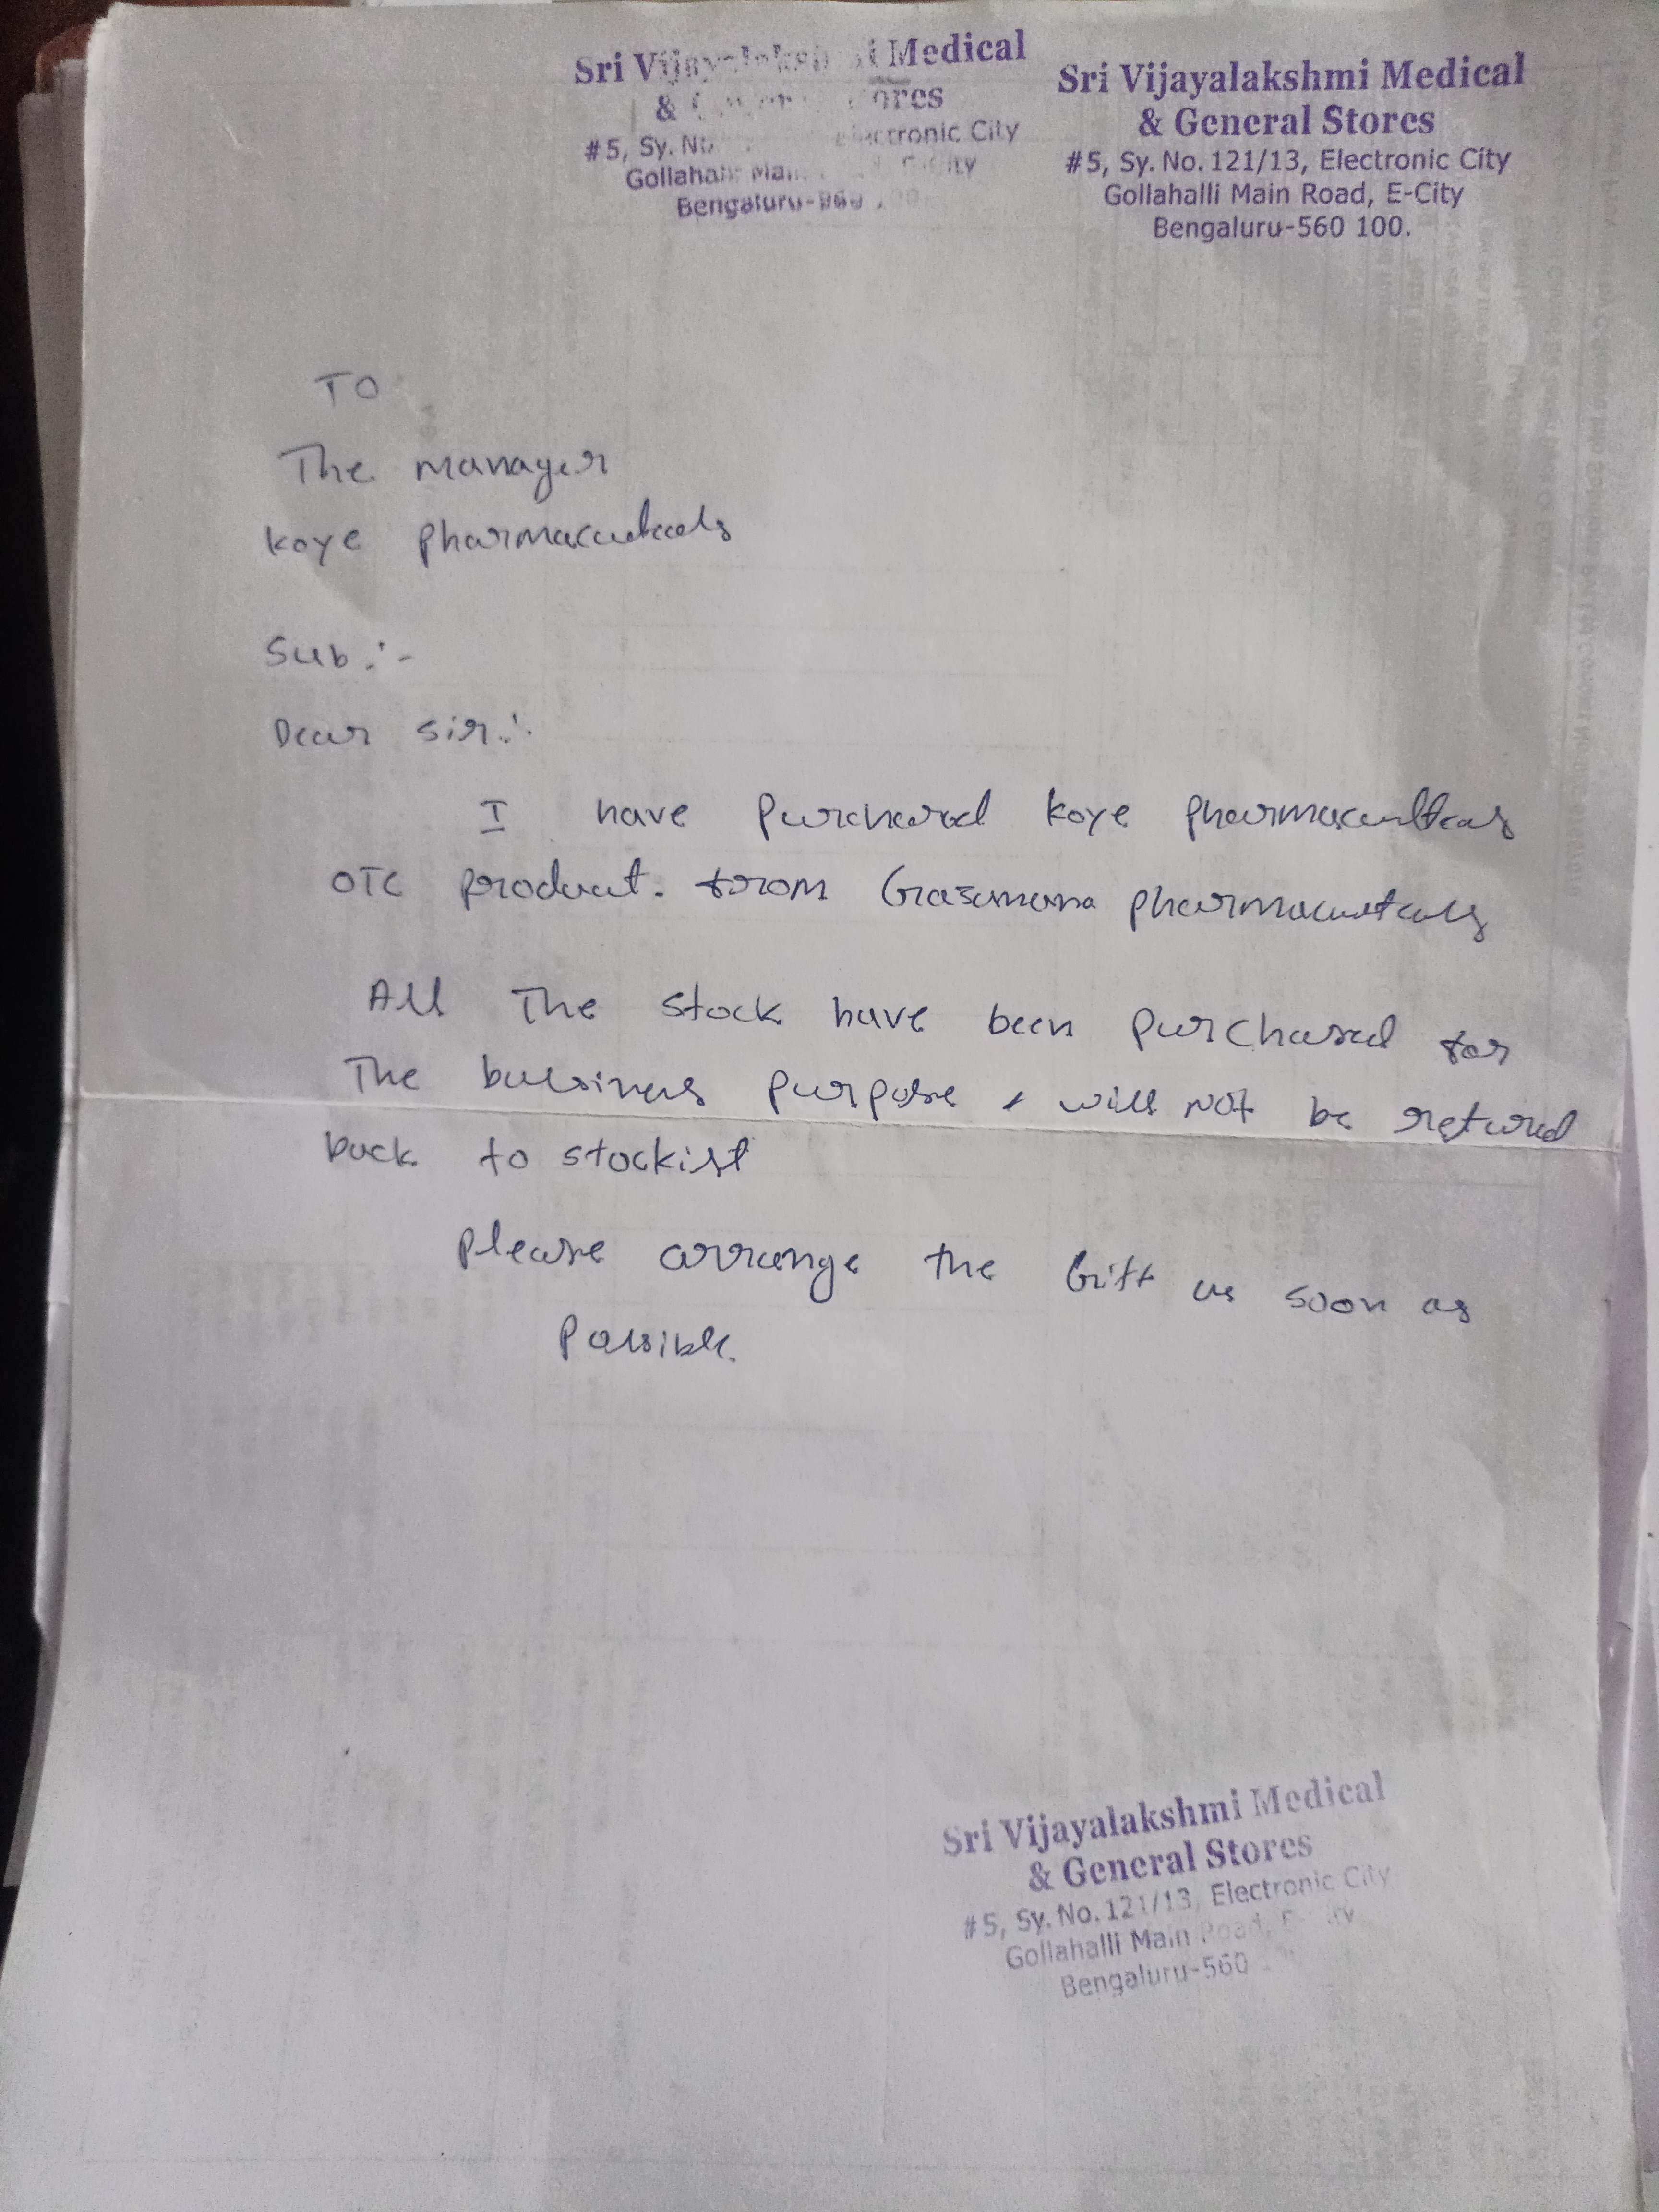 Sri Vijayalakshmi Medical
& General Stores
#5, Sy. No. Electronic City
Gollahalli Main E-City
Bengaluru-560 100.
Sri Vijayalakshmi Medical
& General Stores
#5, Sy. No. 121/13, Electronic City
Gollahalli Main Road, E-City
Bengaluru-560 100.
TO
The manager
Koye Pharmaceuticals
Sub :-
Dear sir :
I have Purchased Koye Pharmaceuticals
OTC product. from Pharmaceuticals
All The stock have been Purchased for
The bussiness purpose & will not be retured
back to stockist
Please arrange the Gift as soon as
Possible.
Sri Vijayalakshmi Medical
& General Stores
#5, Sy. No. 121/13, Electronic City
Gollahalli Main Road, E-City
Bengaluru-560